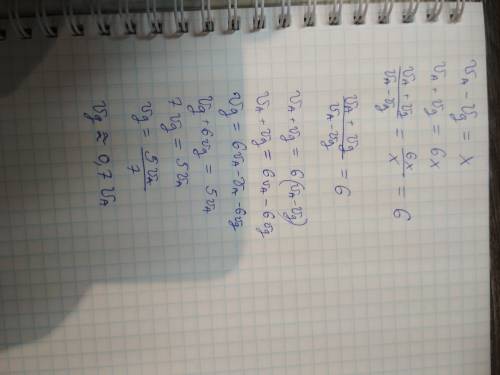 v_л - v_g = x
v_л + v_g = 6x
\frac{v_л + v_g}{v_л - v_g} = \frac{6x}{x} = 6
\frac{v_л + v_g}{v_л - v_g} = 6
v_л + v_g = 6(v_л - v_g)
v_л + v_g = 6v_л - 6v_g
v_g = 6v_л - v_л - 6v_g
v_g + 6v_g = 5v_л
7v_g = 5v_л
v_g = \frac{5v_л}{7}
v_g ≈ 0,7 v_л